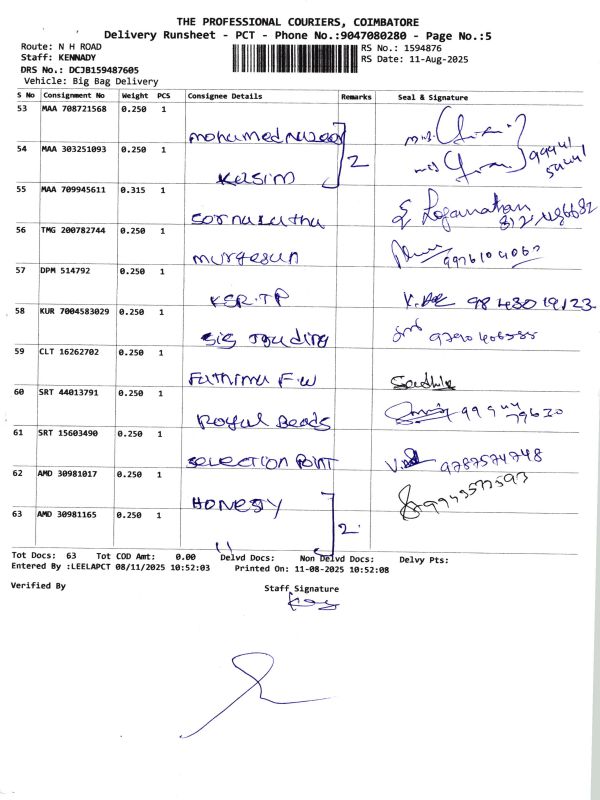 THE PROFESSIONAL COURIERS, COIMBATORE
Delivery Runsheet - PCT - Phone No.:9047080280 - Page No.:5
Route: N H ROAD
RS No.: 1594876
Staff: KENNADY
RS Date: 11-Aug-2025
DRS No.: DCJB159487605
Vehicle: Big Bag Delivery
S No Consignment No Weight PCS Consignee Details Remarks Seal & Signature
53 MAA 708721568 0.250 1 mohamed
54 MAA 303251093 0.250 1 Kasim 2
55 MAA 709945611 0.315 1 Sornalatha Loganathan
56 TMG 200782744 0.250 1 murgesun
57 DPM 514792 0.250 1 KSR.TP 98 43019123
58 KUR 7004583029 0.250 1 sis trading
59 CLT 16262702 0.250 1 Fathima F.W
60 SRT 44013791 0.250 1 Royal Beads
61 SRT 15603490 0.250 1 Selection Point 9787574748
62 AMD 30981017 0.250 1 HONESTY 9943577593
63 AMD 30981165 0.250 1 " 2
Tot Docs: 63 Tot COD Amt: 0.00 Delvd Docs: Non Delvd Docs: Delvy Pts:
Entered By :LEELAPCT 08/11/2025 10:52:03 Printed On: 11-08-2025 10:52:08
Verified By Staff Signature